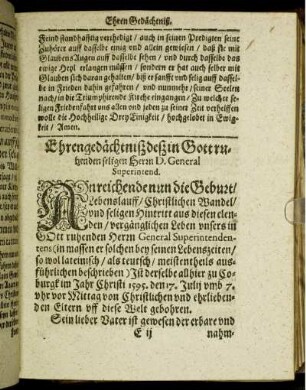 Ehren Gedächtniß.
Feind standhafftig vertheidigt / auch in seinen Predigten seine
Zuhörer auff dasselbe einig vnd allein gewiesen / daß sie mit
Glaubens Augen auff dasselbe sehen / vnd durch dasselbe das
ewige Heyl erlangen müssen / sondern er hat auch selber mit
Glauben sich daran gehalten / biß er sanfft vnd selig auff dassel-
be in Frieden dahin gefahren / vnd nunmehr / seiner Seelen
nach / in die Triumphirende Kirche eingangen / Zu welcher se-
ligen Friedenfahrt vns allen vnd jeden zu seiner Zeit verhelffen
wolle die Hochheilige Dreyeinigkeit / hochgelobt in Ewig-
keit / Amen.
Ehrengedächtniß deß in Gott ru-
henden seligen Herrn D. General
Superintend.
ANreichende nun die Geburt /
Lebenslauff / Christlichen Wandel /
vnd seligen Hintritt aus diesen elen-
den / vergänglichen Leben vnsers in
GOtt ruhenden Herrn General Superintenden-
tens (in massen er solchen bey seinen Lebenszeiten /
so wol lateinisch / als teutsch / meistentheils aus-
führlichen beschrieben) Ist derselbe allhier zu Co-
burgk im Jahr Christi 1595. den 17. Julij vmb 7.
vhr vor Mittag von Christlichen vnd ehrlieben-
den Eltern vff diese Welt gebohren.
Sein lieber Vater ist gewesen der erbare vnd
E ij
nahm-